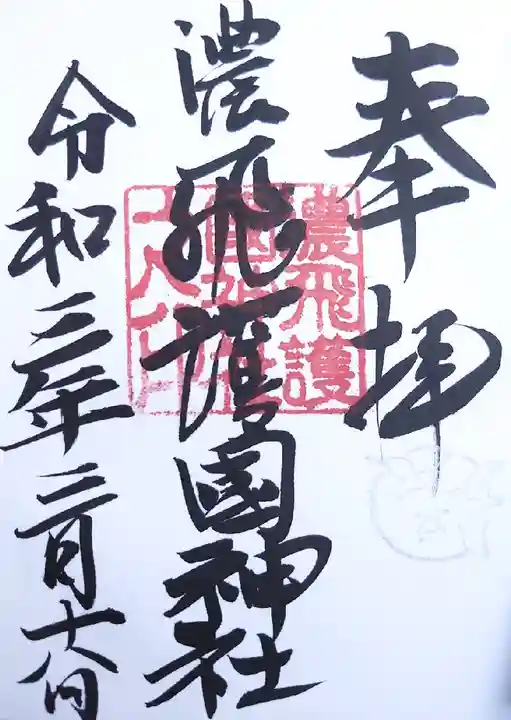 奉拝
濃飛護國神社
令和三年三月十八日
濃飛護
國神社